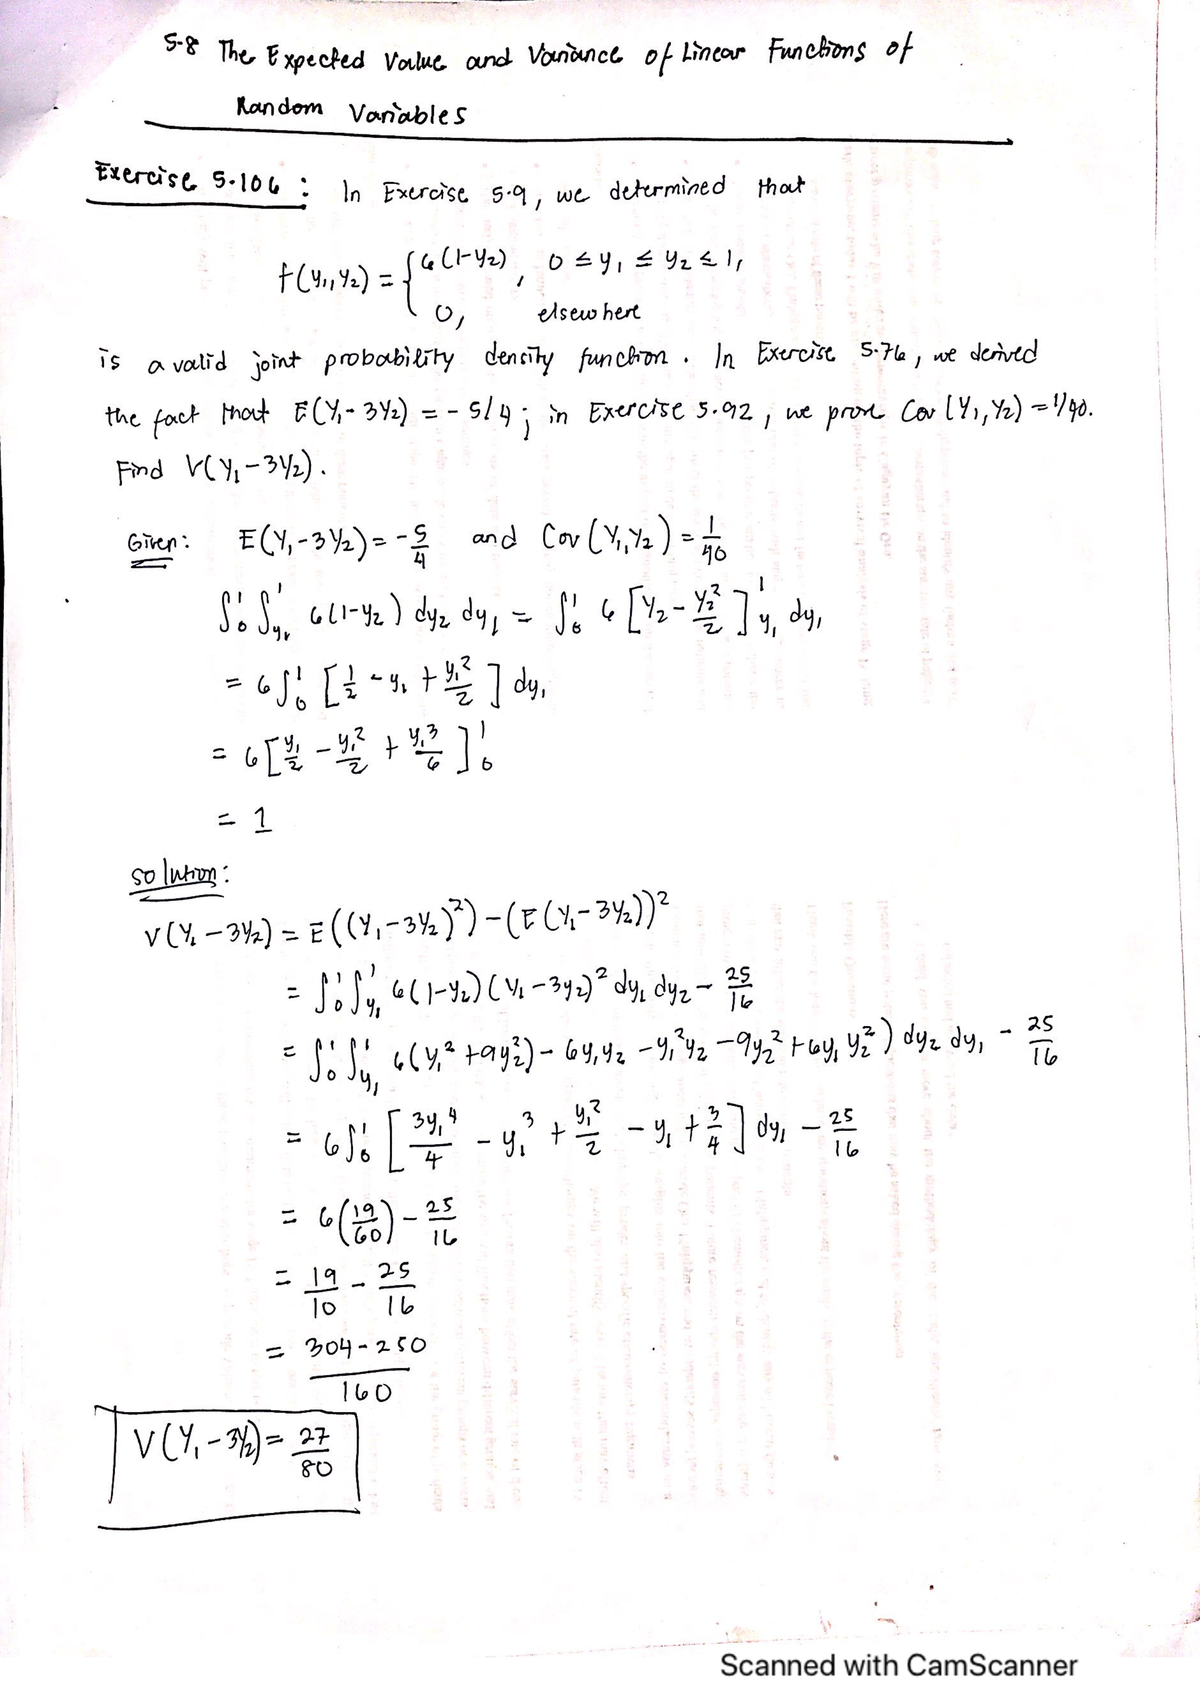 5-8 The Expected Value and Variance of Linear Functions of
Random Variables
Exercise 5.106 : In Exercise 5.9, we determined that
f(y₁,y₂) = { 6(1-y₂), 0 ≤ y₁ ≤ y₂ ≤ 1,
0, elsewhere
is a valid joint probability density function. In Exercise 5.76, we derived
the fact that E(Y₁-3Y₂) = -5/4; in Exercise 5.92, we prove Cov(Y₁,Y₂) = 1/40.
Find V(Y₁-3Y₂).
Given: E(Y₁-3Y₂) = -5/4 and Cov(Y₁,Y₂) = 1/40
∫₀¹ ∫_{y₁}¹ 6(1-y₂) dy₂ dy₁ = ∫₀¹ 6 [y₂ - y₂²/2]_{y₁}¹ dy₁
= 6∫₀¹ [1/2 - y₁ + y₁²/2] dy₁
= 6[y₁/2 - y₁²/2 + y₁³/6]₀¹
= 1
solution:
V(Y₁-3Y₂) = E((Y₁-3Y₂)²) - (E(Y₁-3Y₂))²
= ∫₀¹ ∫_{y₁}¹ 6(1-y₂)(y₁-3y₂)² dy₁ dy₂ - 25/16
= ∫₀¹ ∫_{y₁}¹ 6(y₁² + 9y₂²) - 6y₁y₂ - y₁²y₂ - 9y₂² + 6y₁y₂²) dy₂ dy₁ - 25/16
= 6∫₀¹ [3y₁⁴/4 - y₁³ + y₁²/2 - y₁ + 3/4] dy₁ - 25/16
= 6(19/60) - 25/16
= 19/10 - 25/16
= 304-250/160
V(Y₁-3Y₂) = 27/80
Scanned with CamScanner